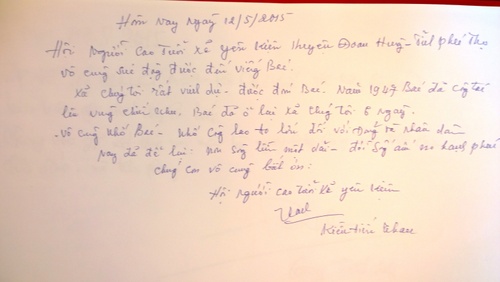 Hôm nay ngày 12/5/2015
Hội Người Cao Tuổi xã Yên Kiện Huyện Đoan Hùng - Tỉnh Phú Thọ
vô cùng xúc động được đến viếng Bác.
Xã chúng tôi rất vinh dự được đón Bác. Năm 1947 Bác đã công tác
lên vùng chiến khu. Bác đã ở lại xã chúng tôi 5 ngày.
Vô cùng nhớ Bác - nhớ công lao to lớn đối với Đảng và nhân dân
nay đã để lại: đời sống ấm no hạnh phúc
chúng con vô cùng biết ơn:
Hội người cao tuổi xã Yên Kiện